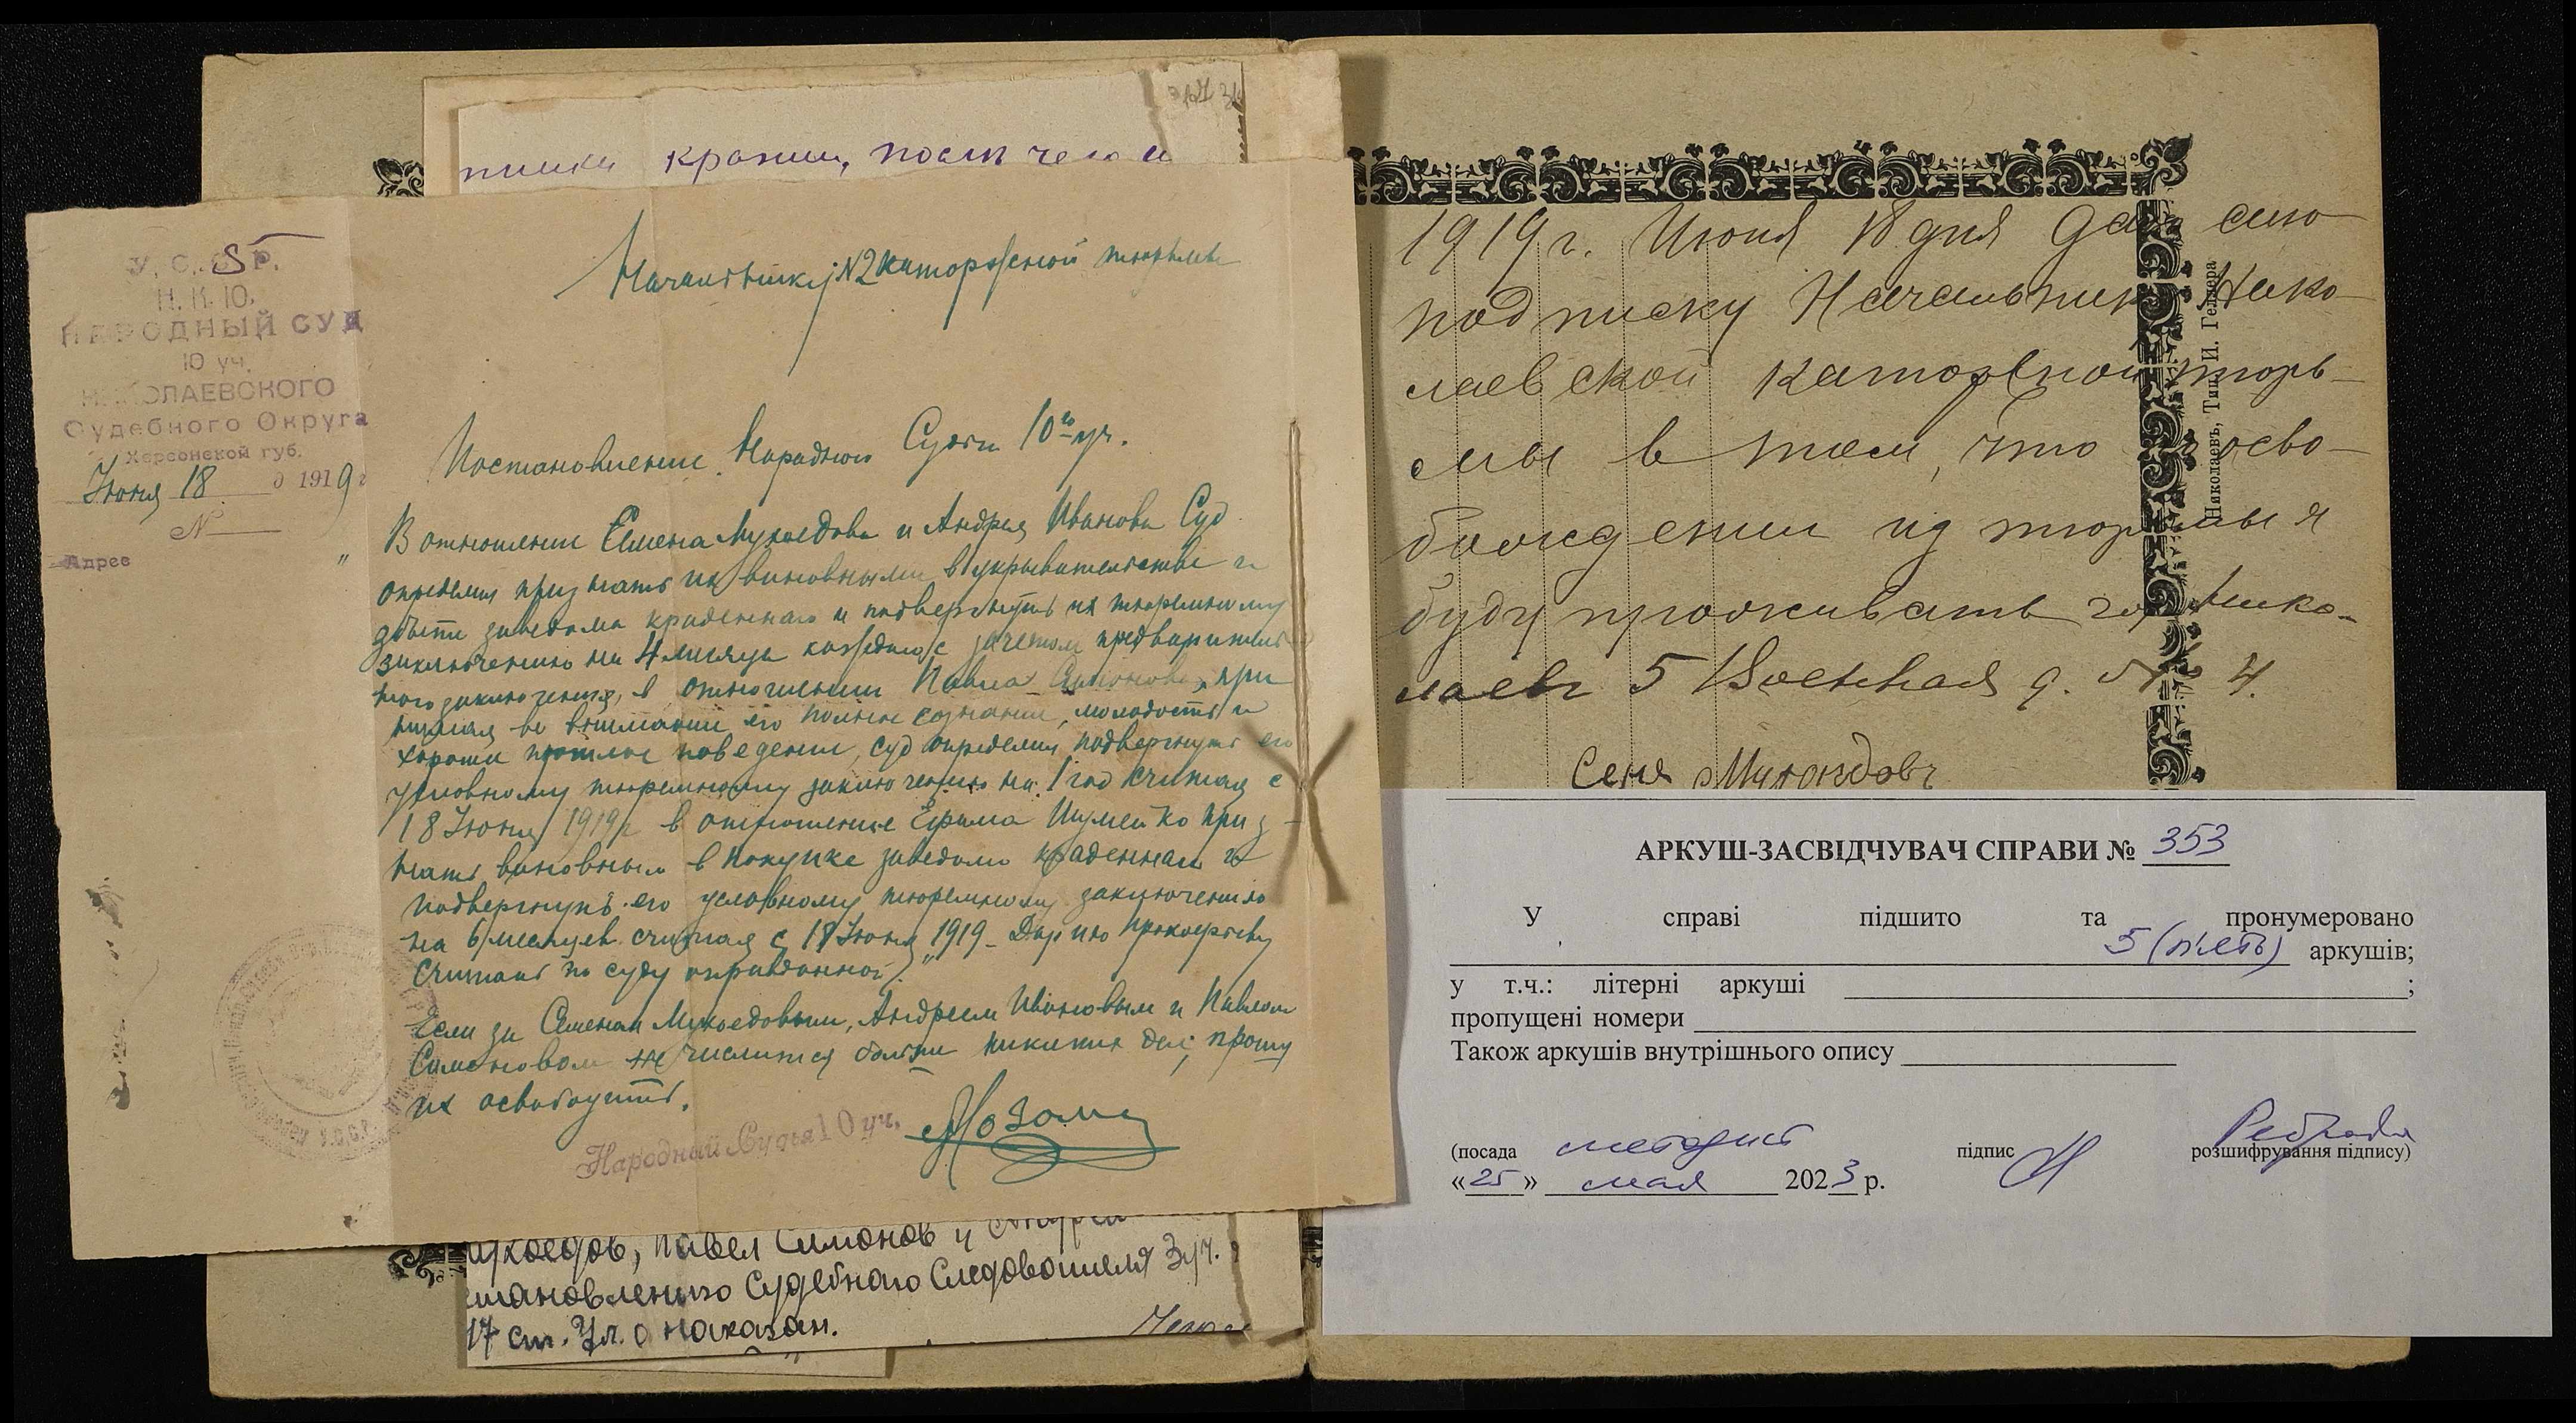 тики кражи, после чего и
У. С. С. Р.
Н. К. Ю.
НАРОДНЫЙ СУД
10 уч.
НИКОЛАЕВСКОГО
Судебного Округа
Херсонской губ.
Июня 18 1919 г
№
Адрес
Начальнику №2 каторжной тюрьмы
Постановление Народного Суда 10го уч.
" В отношении Семена Мукоедова и Андрея Иванова Суд
определил признать их виновными в укрывательстве и
сбыте заведомо краденнаго и подвергнуть их тюремному
заключению на 4 месяца каждого с зачетом предваритель
ного заключения, в отношении Павла Симонова, при
нимая во внимание его полное сознание, молодость и
хорошее прошлое поведение, суд определил подвергнуть его
условному тюремному заключению на 1 год считая с
18 Июня 1919 г в отношение Ефима Шумейко приз-
нать виновным в покупке заведомо краденнаго и
подвергнуть его условному тюремному заключению
на 6 месяцев считая с 18 Июня 1919 - Дарию Прокофьеву
считать по суду оправданной."
Если за Семеном Мукоедовым, Андреем Ивановым и Павлом
Симоновом не числится больше никаких дел, прошу
их освободить.
Народный Судья 10 уч.
укоедов, Павел Симонов и Андрей
становлению Судебнаго Следователя 3 уч.
17 ст. Ул. о наказан.
1919 г. Июня 18 дня даю сию
подписку Начальник Нико-
лаевской каторжной тюрь-
мы в том, что осво-
бождении из тюрьмы я
буду проживать гор Нико-
лаевг 5 Военная д. № 4.
Сеня Мукоедовъ
Николаевъ, Тип. И. Геллера
АРКУШ-ЗАСВІДЧУВАЧ СПРАВИ № 353
У справі підшито та пронумеровано
5 (п'ять) аркушів;
у т.ч.: літерні аркуші ;
пропущені номери
Також аркушів внутрішнього опису
(посада методист підпис розшифрування підпису)
«25» мая 2023 р.